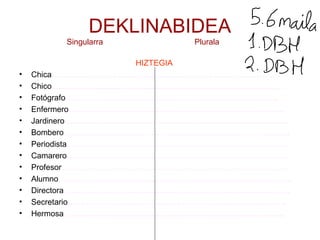 DEKLINABIDEA
5.6 maila
Singularra Plurala
1. DBH
HIZTEGIA
2. DBH
• Chica
• Chico
• Fotógrafo
• Enfermero
• Jardinero
• Bombero
• Periodista
• Camarero
• Profesor
• Alumno
• Directora
• Secretario
• Hermosa